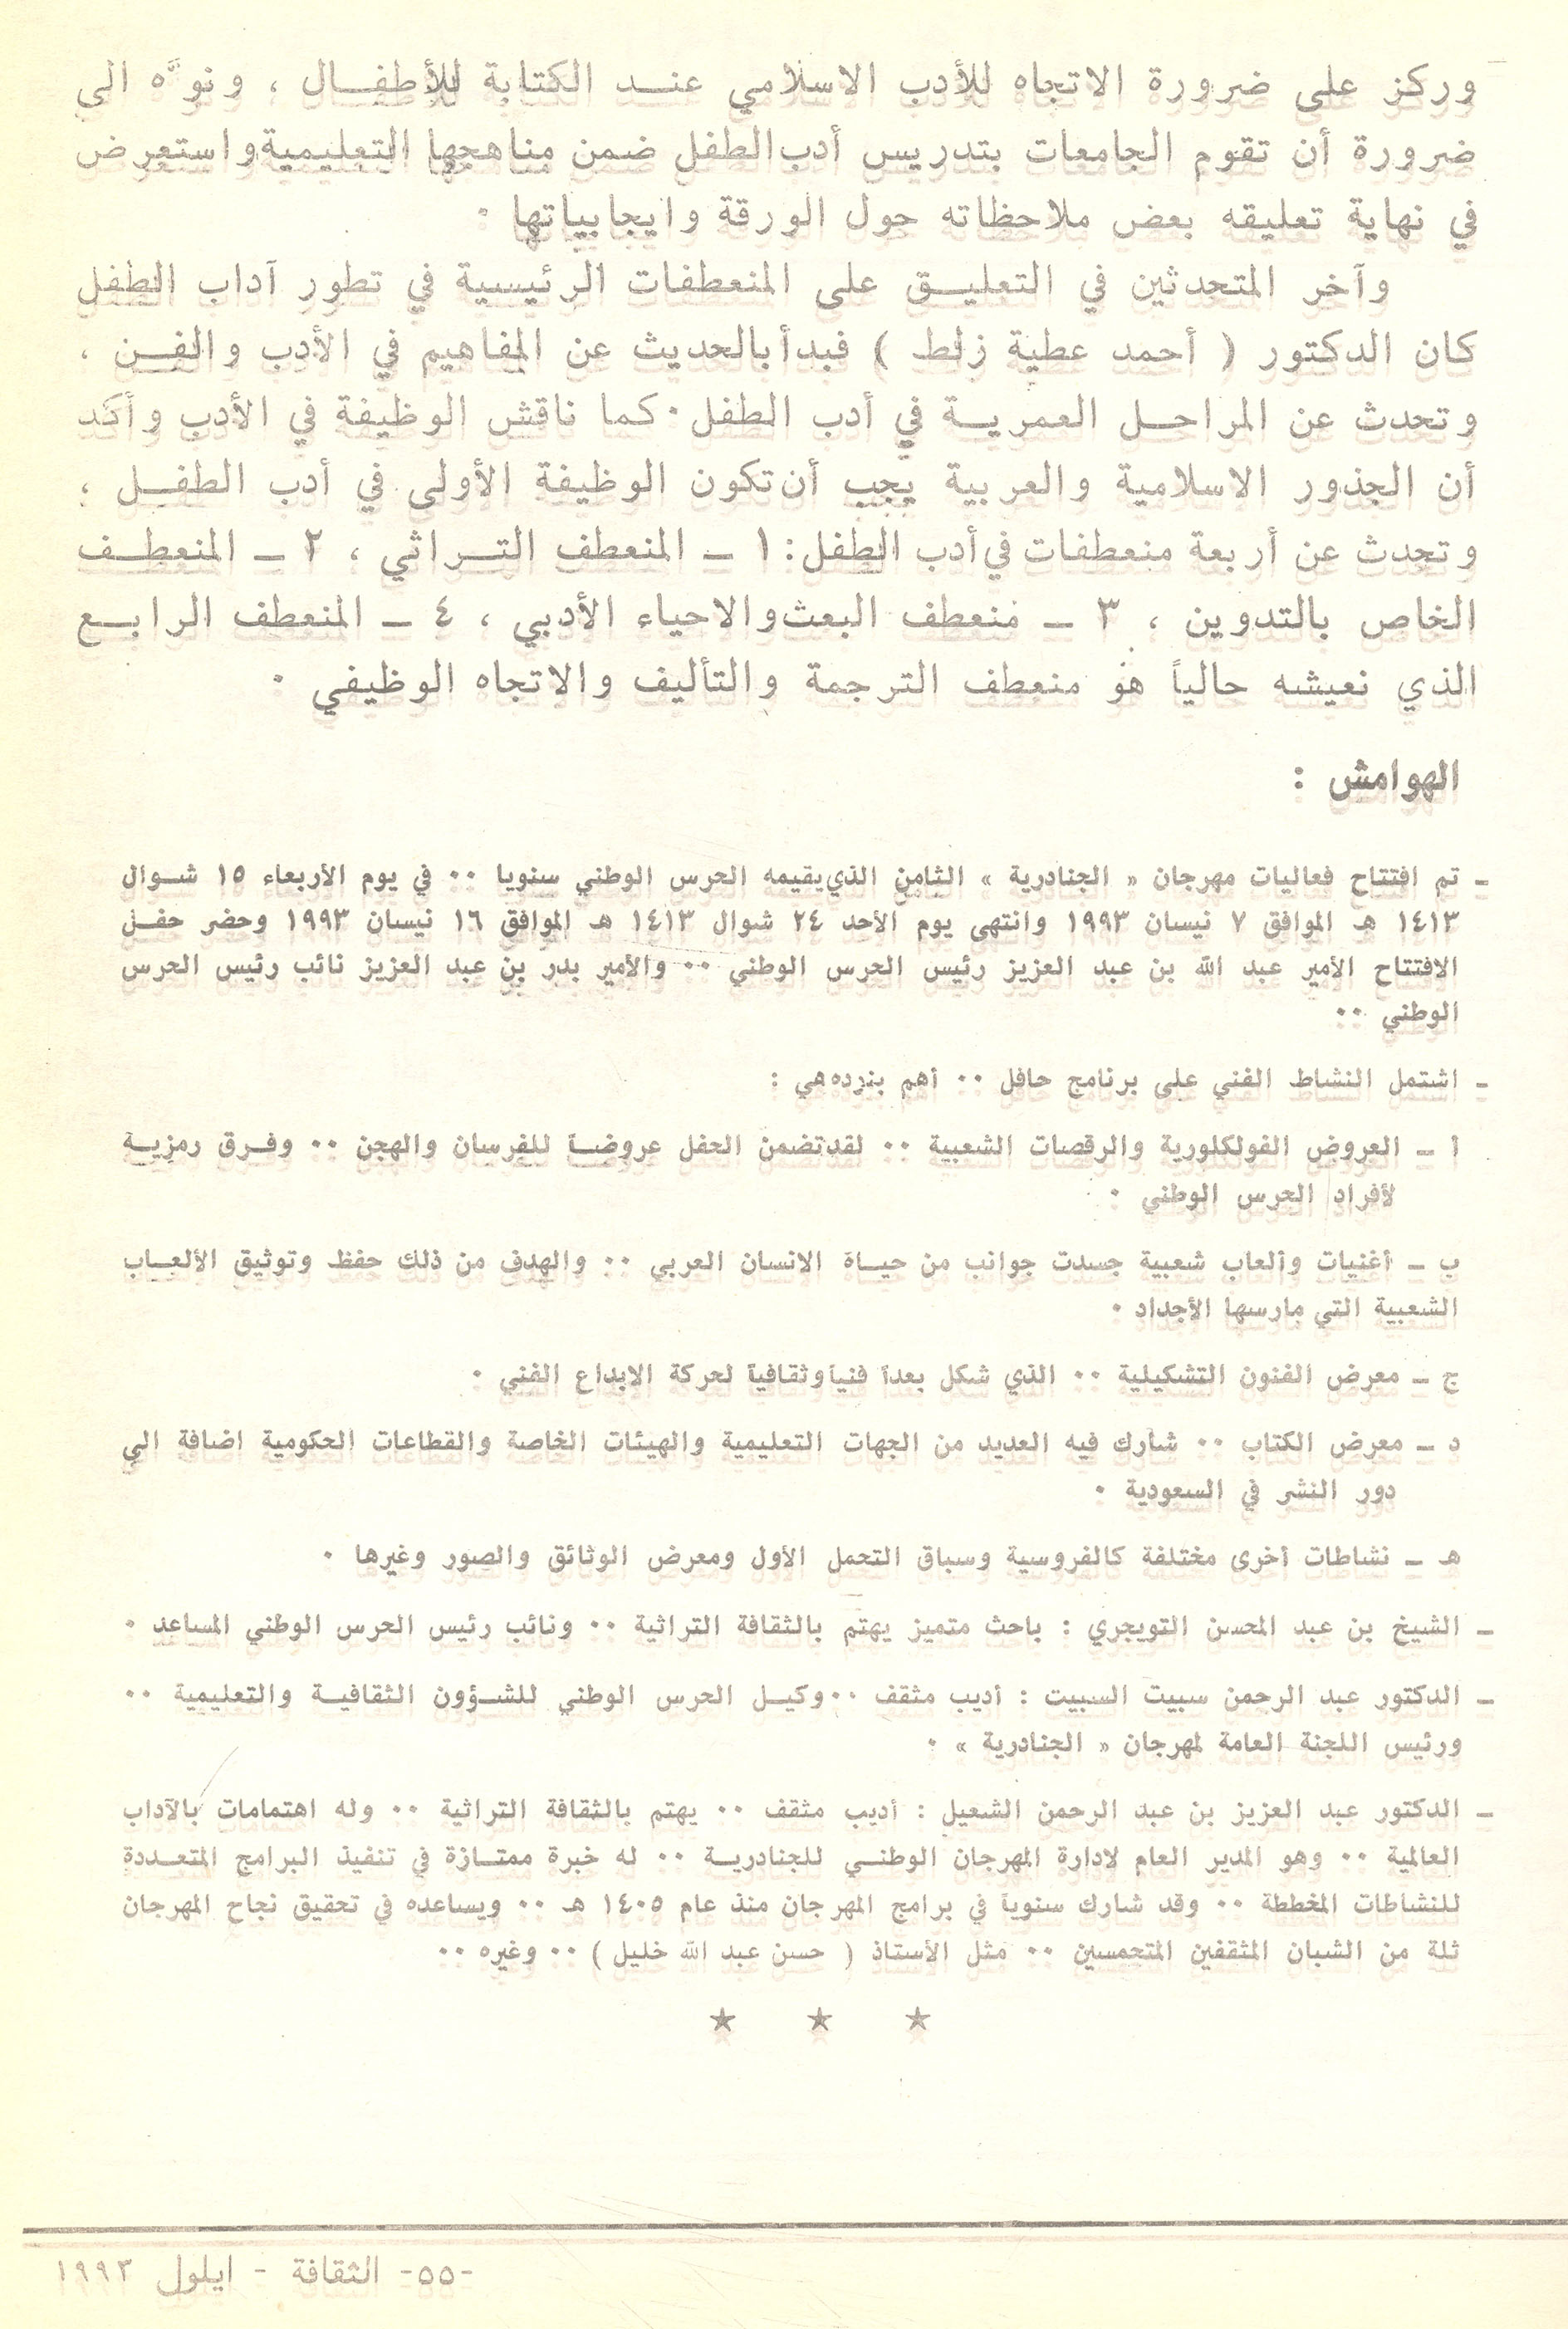 وركز على ضرورة الاتجاه للأدب الاسلامي عنــد الكتابة للأطفــال ، ونوَّه الى
ضرورة أن تقوم الجامعات بتدريس أدب الطفل ضمن مناهجها التعليمية واستعرض
في نهاية تعليقه بعض ملاحظاته حول الورقة وايجابياتها ٠
وآخر المتحدثين في التعليــق على المنعطفات الرئيسية في تطور آداب الطفل
كان الدكتور ( أحمد عطية زلط ) فبدأ بالحديث عن المفاهيم في الأدب والفــن ،
وتحدث عن المراحــل العمريــة في أدب الطفل ٠ كما ناقش الوظيفة في الأدب وأكد
أن الجذور الاسلامية والعربية يجب أن تكون الوظيفة الأولى في أدب الطفــل ،
وتحدث عن أربعة منعطفات في أدب الطفل : ١ ــ المنعطف التــراثي ، ٢ ــ المنعطــف
الخاص بالتدوين ، ٣ ــ منعطف البعث والاحياء الأدبي ، ٤ ــ المنعطف الرابــع
الذي نعيشه حالياً هو منعطف الترجمة والتأليف والاتجاه الوظيفي ٠
الهوامش :
ــ تم افتتاح فعاليات مهرجان « الجنادرية » الثامن الذي يقيمه الحرس الوطني سنويا ٠٠ في يوم الأربعاء ١٥ شــوال
١٤١٣ هـ الموافق ٧ نيسان ١٩٩٣ وانتهى يوم الأحد ٢٤ شوال ١٤١٣ هـ الموافق ١٦ نيسان ١٩٩٣ وحضر حفــل
الافتتاح الأمير عبد الله بن عبد العزيز رئيس الحرس الوطني ٠٠ والأمير بدر بن عبد العزيز نائب رئيس الحرس
الوطني ٠٠
ــ اشتمل النشاط الفني على برنامج حافل ٠٠ أهم بنوده هي :
أ ــ العروض الفولكلورية والرقصات الشعبية ٠٠ لقد تضمن الحفل عروضــاً للفرسان والهجن ٠٠ وفــرق رمزيــة
لأفراد الحرس الوطني ٠
ب ــ أغنيات وألعاب شعبية جسدت جوانب من حيــاة الانسان العربي ٠٠ والهدف من ذلك حفظ وتوثيق الألعــاب
الشعبية التي مارسها الأجداد ٠
ج ــ معرض الفنون التشكيلية ٠٠ الذي شكل بعداً فنياً وثقافياً لحركة الابداع الفني ٠
د ــ معرض الكتاب ٠٠ شارك فيه العديد من الجهات التعليمية والهيئات الخاصة والقطاعات الحكومية اضافة الى
دور النشر في السعودية ٠
هـ ــ نشاطات أخرى مختلفة كالفروسية وسباق التحمل الأول ومعرض الوثائق والصور وغيرها ٠
ــ الشيخ بن عبد المحسن التويجري : باحث متميز يهتم بالثقافة التراثية ٠٠ ونائب رئيس الحرس الوطني المساعد ٠
ــ الدكتور عبد الرحمن سبيت السبيت : أديب مثقف ٠٠ وكيــل الحرس الوطني للشــؤون الثقافيــة والتعليمية ٠٠
ورئيس اللجنة العامة لمهرجان « الجنادرية » ٠
ــ الدكتور عبد العزيز بن عبد الرحمن الشعيل : أديب مثقف ٠٠ يهتم بالثقافة التراثية ٠٠ وله اهتمامات بالآداب
العالمية ٠٠ وهو المدير العام لادارة المهرجان الوطنــي للجنادريــة ٠٠ له خبرة ممتــازة في تنفيذ البرامج المتعــددة
للنشاطات المخططة ٠٠ وقد شارك سنوياً في برامج المهرجان منذ عام ١٤٠٥ هـ ٠٠ ويساعده في تحقيق نجاح المهرجان
ثلة من الشبان المثقفين المتحمسين ٠٠ مثل الأستاذ ( حسن عبد الله خليل ) ٠٠ وغيره ٠٠
★ ★ ★
-٥٥- الثقافة - ايلول ١٩٩٣